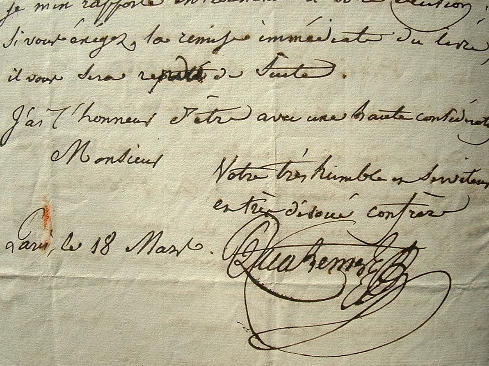 je m'en rapporte entièrement à votre décision.
Si vous éxigez, la remise immédiate du livre,
il vous sera de Suite.
J'ai l'honneur d'être avec une haute considérat
Monsieur
Votre très humble en Serviteur
en très dévoué confrère
Paris, le 18 Mars.